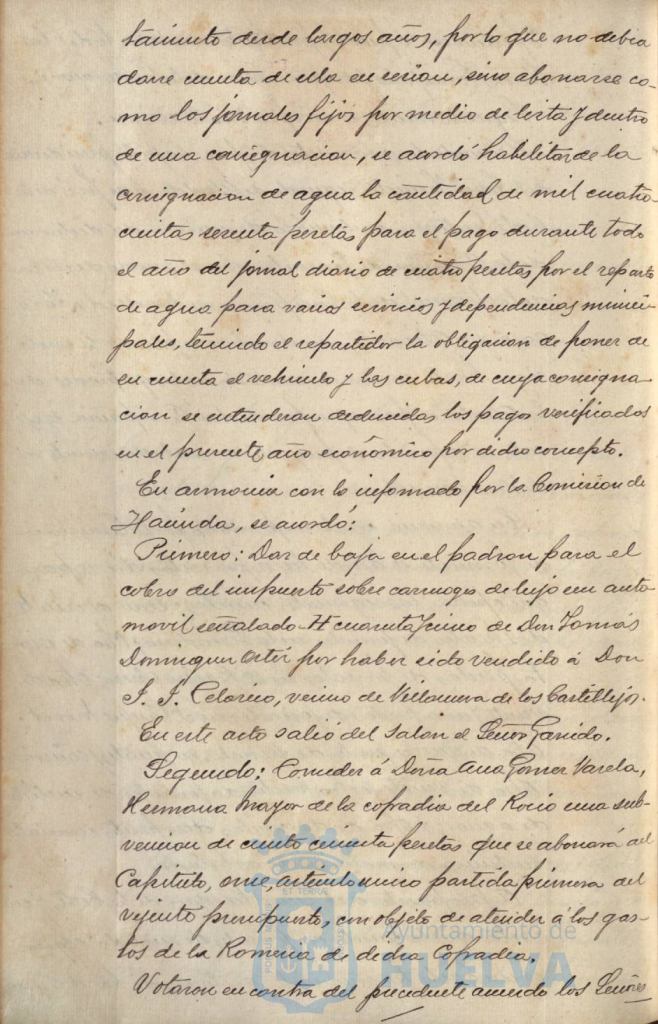 tamiento desde largos años, por lo que no debia
darse cuenta de ella en sesion, sino abonarse co-
mo los jornales fijos por medio de lista y dentro
de una consignacion, se acordó habilitar de la
consignacion de agua la cantidad de mil cuatro-
cientas sesenta pesetas para el pago durante todo
el año del jornal diario de cuatro pesetas por el reparto
de agua para varios servicios y dependencias munici-
pales, teniendo el repartidor la obligacion de poner de
su cuenta el vehiculo y las cubas, de cuya consigna
cion se entenderan deducidas los pagos verificados
en el presente año económico por dicho concepto.
En armonia con lo informado por la Comision de
Hacienda, se acordó:
Primero: Dar de baja en el padron para el
cobro del impuesto sobre carruages de lujo un auto
movil señalado H cuarenta y cinco de Don Tomás
Dominguez Ortiz por haber sido vendido á Don
J. J. Celorico, vecino de Villanueva de los Castillejos.
En este acto salió del Salon el Señor Garrido.
Segundo: Conceder á Doña Ana Gomez Varela,
Hermana Mayor de la cofradia del Rocio una sub-
vencion de ciento cincuenta pesetas que se abonará del
Capitulo, once, articulo unico partida primera del
vijente presupuesto, con objeto de atender á los gas-
tos de la Romeria de dicha Cofradia.
Votaron en contra del precedente acuerdo los Señores
Ayuntamiento de
HUELVA